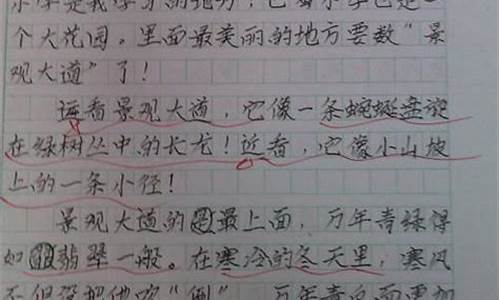 小学是我学习的地方，它
个大花园。里面最美丽的地方要数“景
观大道”了！
远看景观大道，它像一条蜿蜒盘旋
在绿树丛中的长龙！近看，它像小山坡
上的一条小径！
景观大道的最上面，万年青绿得
如翡翠一般。在寒冷的冬天里，寒风
不但没把他吹“倒”，万年青